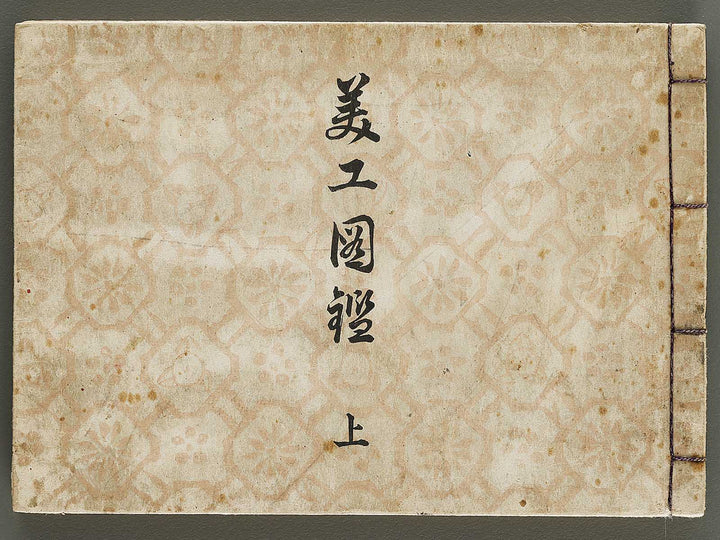 美工図鑑 上